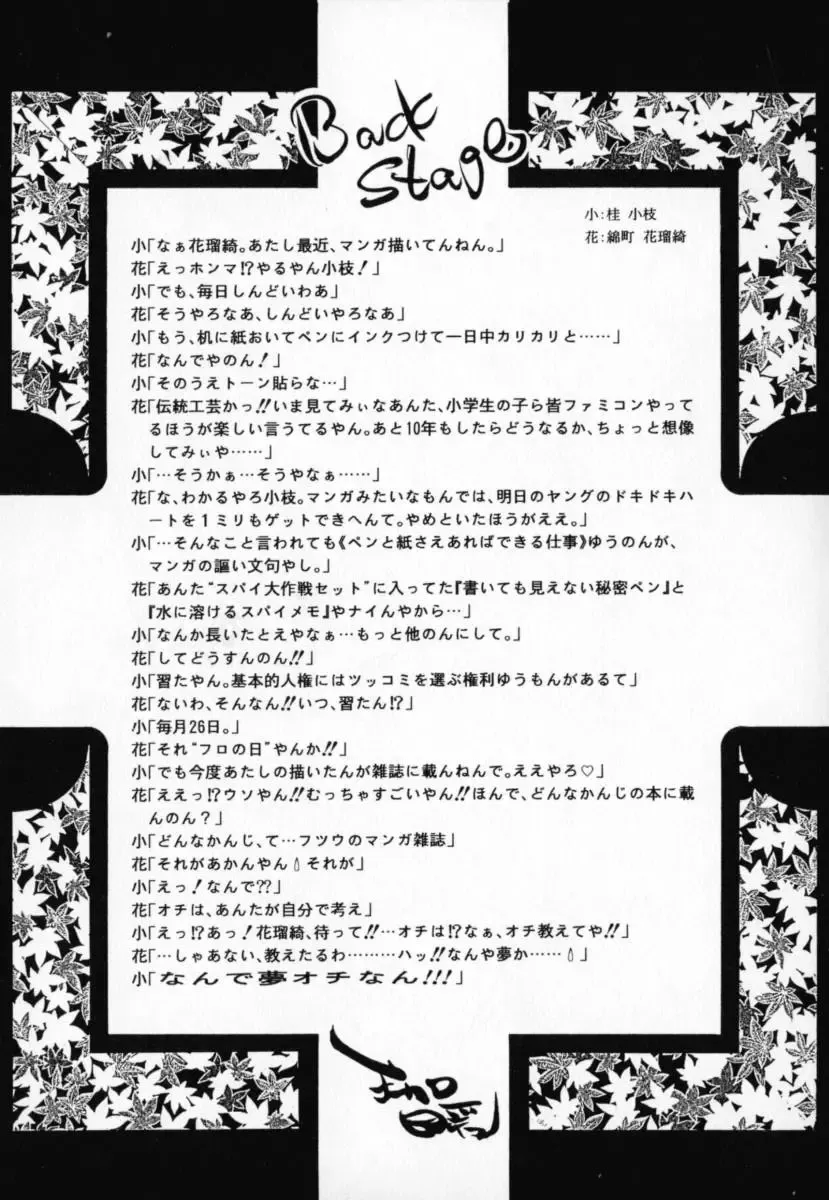 Back
Stage
小:桂 小枝
花:綿町 花瑠綺
小「なぁ花瑠綺。あたし最近、マンガ描いてんねん。」
花「えっホンマ!?やるやん小枝!」
小「でも、毎日しんどいわあ」
花「そうやろなあ、しんどいやろなあ」
小「もう、机に紙おいてペンにインクつけて一日中カリカリと……」
花「なんでやのん!」
小「そのうえトーン貼らな…」
花「伝統工芸かっ!!いま見てみぃなあんた、小学生の子ら皆ファミコンやって
るほうが楽しい言うてるやん。あと10年もしたらどうなるか、ちょっと想像
してみぃや……」
小「…そうかぁ…そうやなぁ……」
花「な、わかるやろ小枝。マンガみたいなもんでは、明日のヤングのドキドキハ
ートを1ミリもゲットできへんて。やめといたほうがええ。」
小「…そんなこと言われても《ペンと紙さえあればできる仕事》ゆうのんが、
マンガの謳い文句やし。」
花「あんた“スパイ大作戦セット”に入ってた『書いても見えない秘密ペン』と
『水に溶けるスパイメモ』やナイんやから…」
小「なんか長いたとえやなぁ…もっと他のんにして。」
花「してどうすんのん!!」
小「習たやん。基本的人権にはツッコミを選ぶ権利ゆうもんがあるて」
花「ないわ、そんなん!!いつ、習たん!?」
小「毎月26日。」
花「それ“フロの日”やんか!!」
小「でも今度あたしの描いたんが雑誌に載んねんで。ええやろ♡」
花「ええっ!?ウソやん!!むっちゃすごいやん!!ほんで、どんなかんじの本に載
んのん?」
小「どんなかんじ、て…フツウのマンガ雑誌」
花「それがあかんやん💧それが」
小「えっ!なんで??」
花「オチは、あんたが自分で考え」
小「えっ!?あっ!花瑠綺、待って!!…オチは!?なぁ、オチ教えてや!!」
花「…しゃあない、教えたるわ………ハッ!!なんや夢か……💧」
小「なんで夢オチなん!!!」